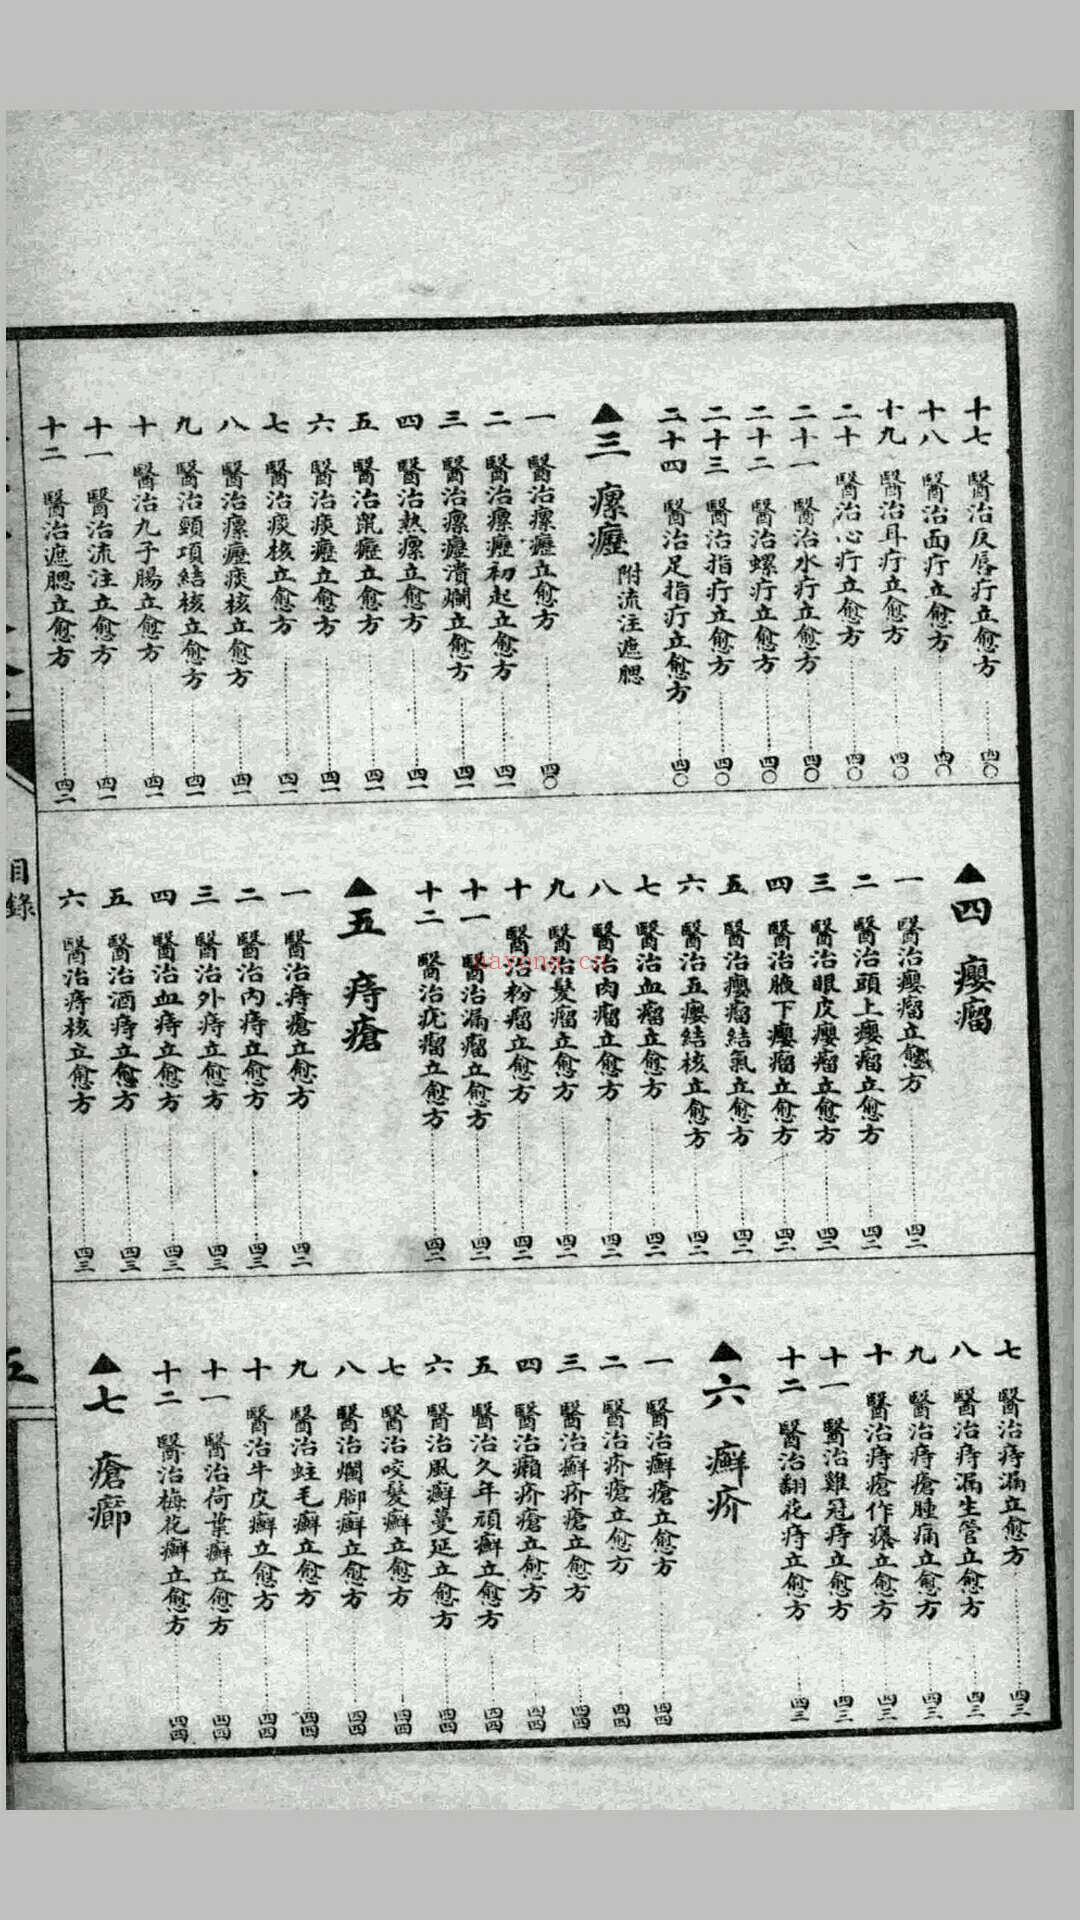 十七 醫治反唇疔立愈方 四〇
十八 醫治面疔立愈方 四〇
十九 醫治耳疔立愈方 四〇
二十 醫治心疔立愈方 四〇
二十一 醫治水疔立愈方 四〇
二十二 醫治螺疔立愈方 四〇
二十三 醫治指疔立愈方 四〇
二十四 醫治足指疔立愈方 四〇
▲三 瘰癧 附流注遮腮
一 醫治瘰癧立愈方 四〇
二 醫治瘰癧初起立愈方 四一
三 醫治瘰癧潰爛立愈方 四一
四 醫治熱瘰立愈方 四一
五 醫治鼠癧立愈方 四一
六 醫治痰癧立愈方 四一
七 醫治痰核立愈方 四一
八 醫治瘰癧痰核立愈方 四一
九 醫治頸項結核立愈方 四一
十 醫治九子腸立愈方 四一
十一 醫治流注立愈方 四一
十二 醫治遮腮立愈方 四二
▲四 癭瘤
一 醫治癭瘤立愈方 四二
二 醫治頭上癭瘤立愈方 四二
三 醫治眼皮癭瘤立愈方 四二
四 醫治腋下癭瘤立愈方 四二
五 醫治癭瘤結氣立愈方 四二
六 醫治五癭結核立愈方 四二
七 醫治血瘤立愈方 四二
八 醫治肉瘤立愈方 四二
九 醫治髮瘤立愈方 四二
十 醫治粉瘤立愈方 四二
十一 醫治漏瘤立愈方 四二
十二 醫治疣瘤立愈方 四二
▲五 痔瘡
一 醫治痔瘡立愈方 四二
二 醫治內痔立愈方 四三
三 醫治外痔立愈方 四三
四 醫治血痔立愈方 四三
五 醫治酒痔立愈方 四三
六 醫治痔核立愈方 四三
七 醫治痔漏立愈方 四三
八 醫治痔漏生管立愈方 四三
九 醫治痔瘡腫痛立愈方 四三
十 醫治痔瘡作癢立愈方 四三
十一 醫治雞冠痔立愈方 四三
十二 醫治翻花痔立愈方 四三
▲六 癬疥
一 醫治癬瘡立愈方 四四
二 醫治疥瘡立愈方 四四
三 醫治癬疥瘡立愈方 四四
四 醫治癩疥瘡立愈方 四四
五 醫治久年頑癬立愈方 四四
六 醫治風癬蔓延立愈方 四四
七 醫治咬髮癬立愈方 四四
八 醫治爛腳癬立愈方 四四
九 醫治蛀毛癬立愈方 四四
十 醫治牛皮癬立愈方 四四
十一 醫治荷葉癬立愈方 四四
十二 醫治梅花癬立愈方 四四
▲七 瘡癤
目錄
五